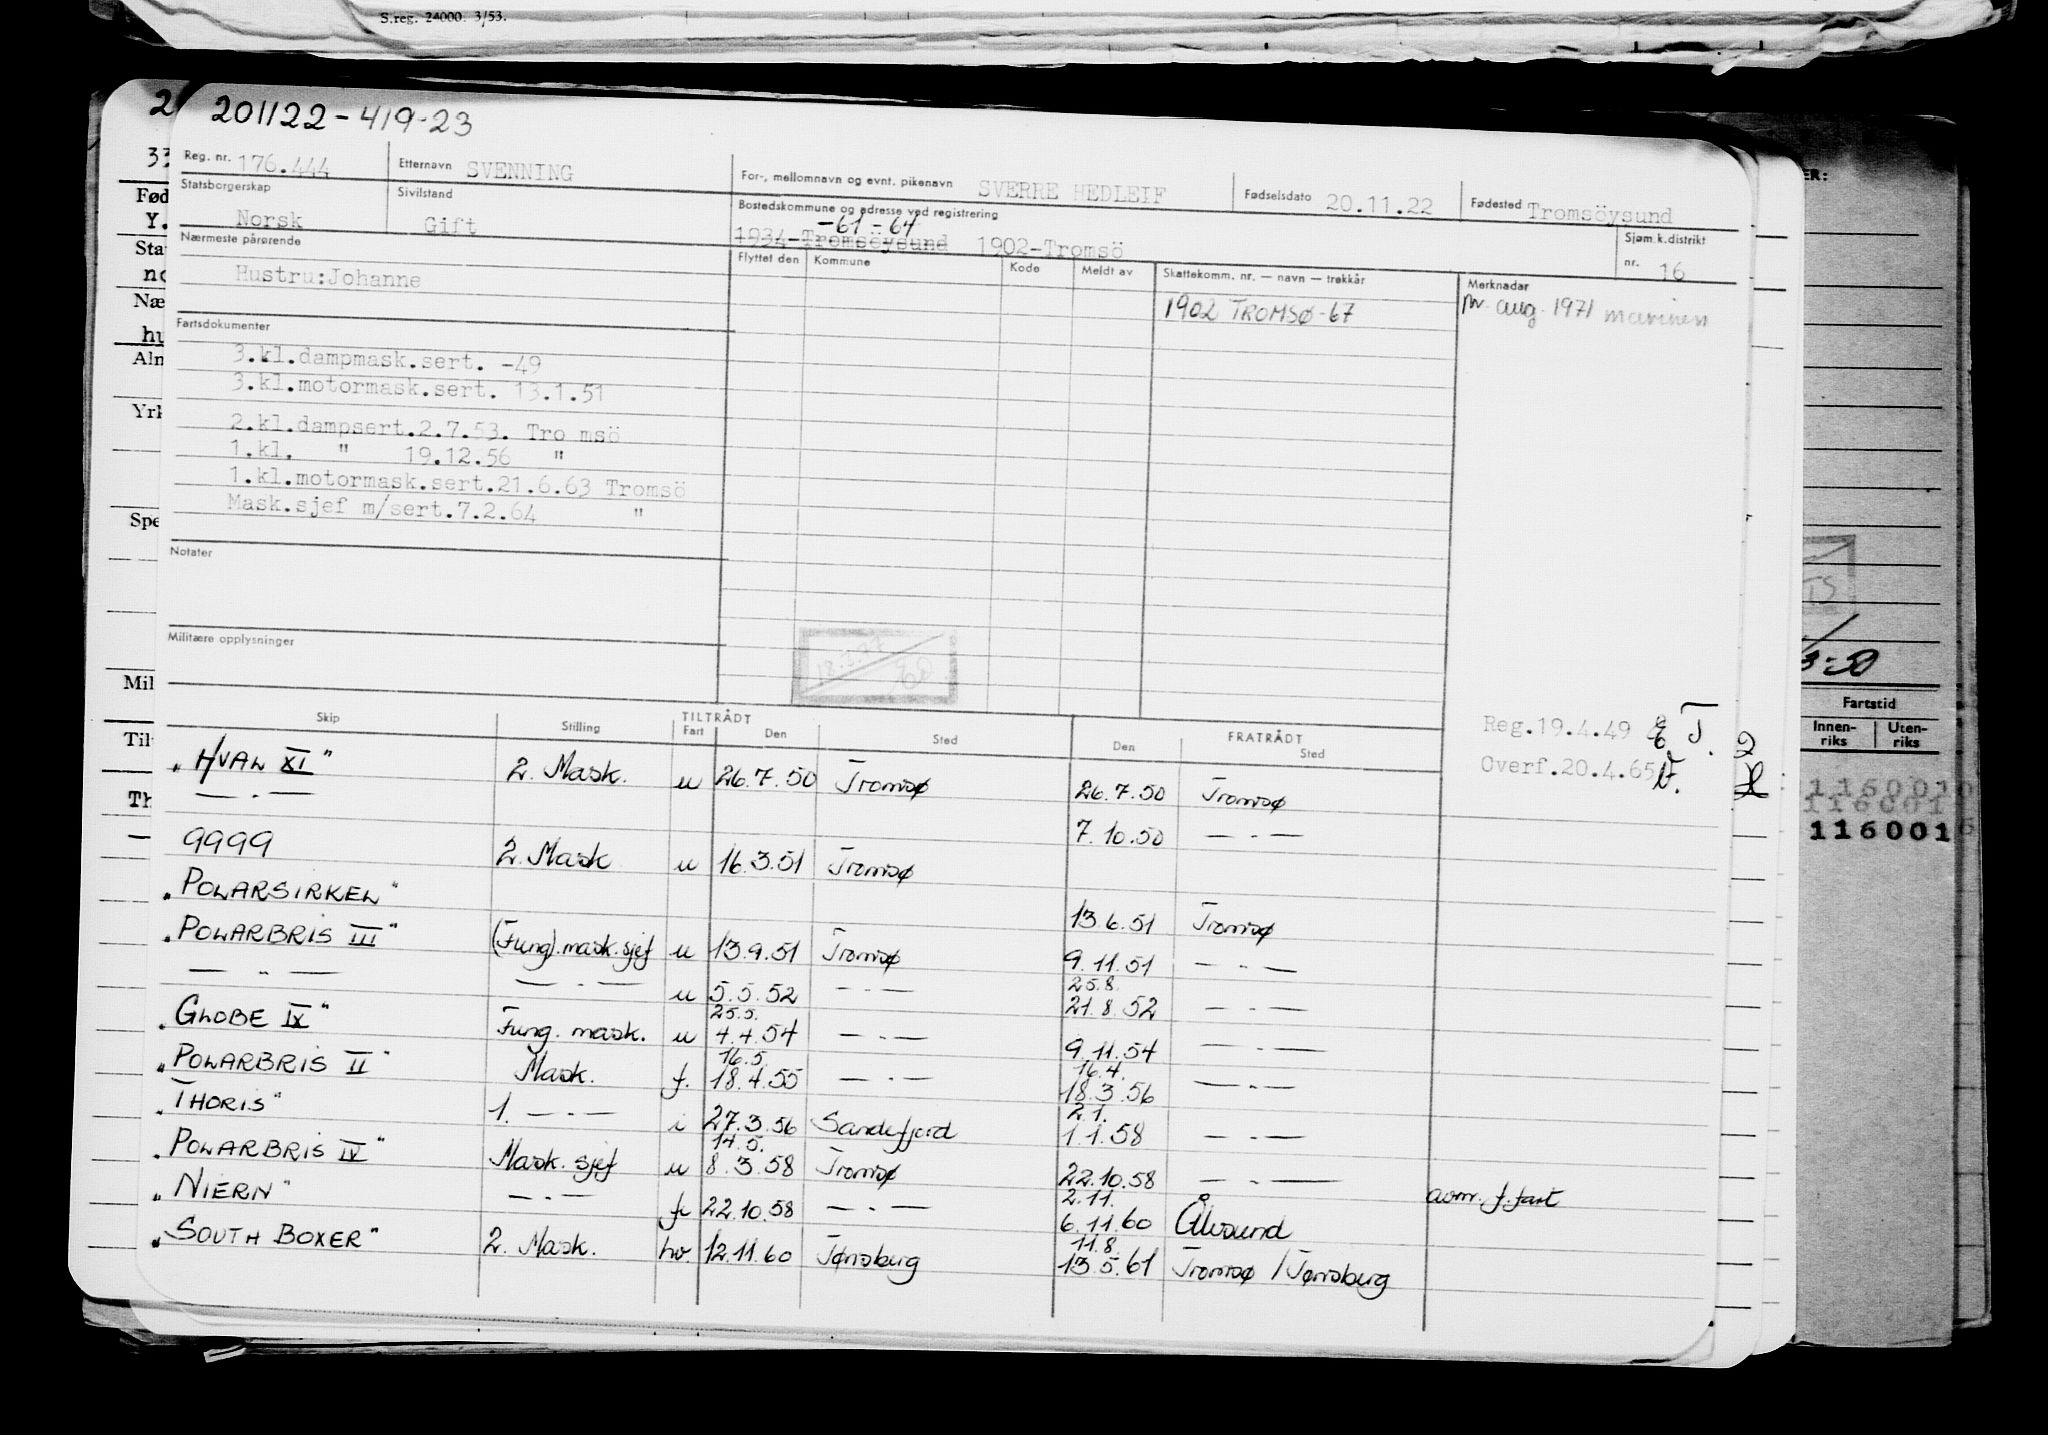 S.reg. 24000. 3/53.
201122-419-23
Reg. nr. 176.444 Etternavn SVENNING For-, mellomnavn og evnt. pikenavn SVERRE HEDLEIF Fødselsdato 20.11.22 Fødested Tromsöysund
Statsborgerskap Norsk Sivilstand Gift Bostedskommune og adresse ved registrering
-61 -64
1934-Tromsöysund 1902-Tromsö Sjøm.k.distrikt nr. 16
Nærmeste pårørende Flyttet den Kommune Kode Meldt av Skattekomm. nr. — navn — trekkår Merknadar
Hustru:Johanne
1902 TROMSØ-67 pr. aug. 1971 marinen
Fartsdokumenter
3.kl.dampmask.sert. -49
3.kl.motormask.sert. 13.1.51
2.kl.dampsert.2.7.53. Tro msö
1.kl. " 19.12.56 "
1.kl.motormask.sert.21.6.63 Tromsö
Mask.sjef m/sert.7.2.64 "
Notater
Militære opplysninger
Reg.19.4.49
Overf.20.4.65
Skip Stilling TILTRÅDT Fart Den Sted FRATRÅDT Den Sted
"HVAL XI" 2. Mask. u 26.7.50 Tromsø 26.7.50 Tromsø
— . — 7.10.50 — . —
9999 2. Mask u 16.3.51 Tromsø
"POLARSIRKEL" 13.6.51 Tromsø
"POLARBRIS III" (Fung). mask. sjef u 13.9.51 Tromsø 9.11.51 — . —
25.8.
— " — — . — u 5.5.52 — . — 21.8.52 — . —
25.5.
"GLOBE IX" Fung. mask. u 4.4.54 — . — 9.11.54 — . —
16.5. 16.4.
"POLARBRIS II" Mask. f. 18.4.55 — . — 18.3.56 — . —
2.1.
"THORIS" 1. — . — i 27.3.56 Sandefjord 1.1.58 — . —
14.5.
"POLARBRIS IV" Mask. sjef u 8.3.58 Tromsø 22.10.58 — . — avm. f. fart
2.11.
"NIERN" — . — fi 22.10.58 — . — 6.11.60 Ålesund
11.8.
"SOUTH BOXER" 2. Mask. hv. 12.11.60 Tønsberg 13.5.61 Tromsø / Tønsberg
3-50
Fartstid
Innenriks Utenriks
116001
116001
116001